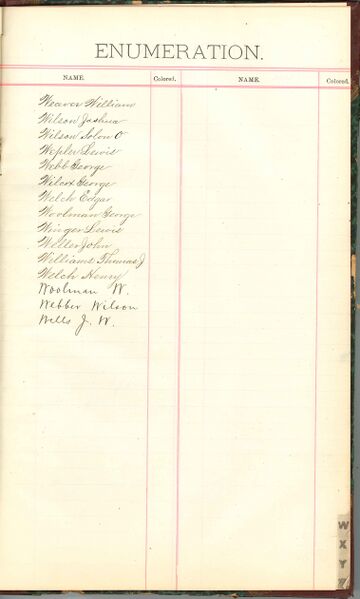 ENUMERATION.
NAME. Colored. NAME. Colored.
Weaver William
Wilson Joshua
Wilson Solon O
Wepler Lewis
Webb George
Wilcox George
Welch Edgar
Woolman George
Winger Lewis
Weller John
Williams Thomas J
Welch Henry
Woolman W.
Webber Wilson
Wells J. W.
W
X
Y